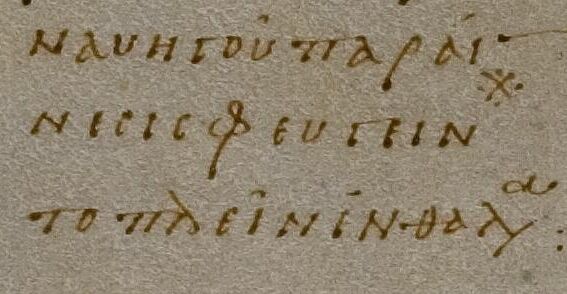 ναυηγοῦ παραί
νεσις φευγειν
το πλεῖν ἐν θαλα :